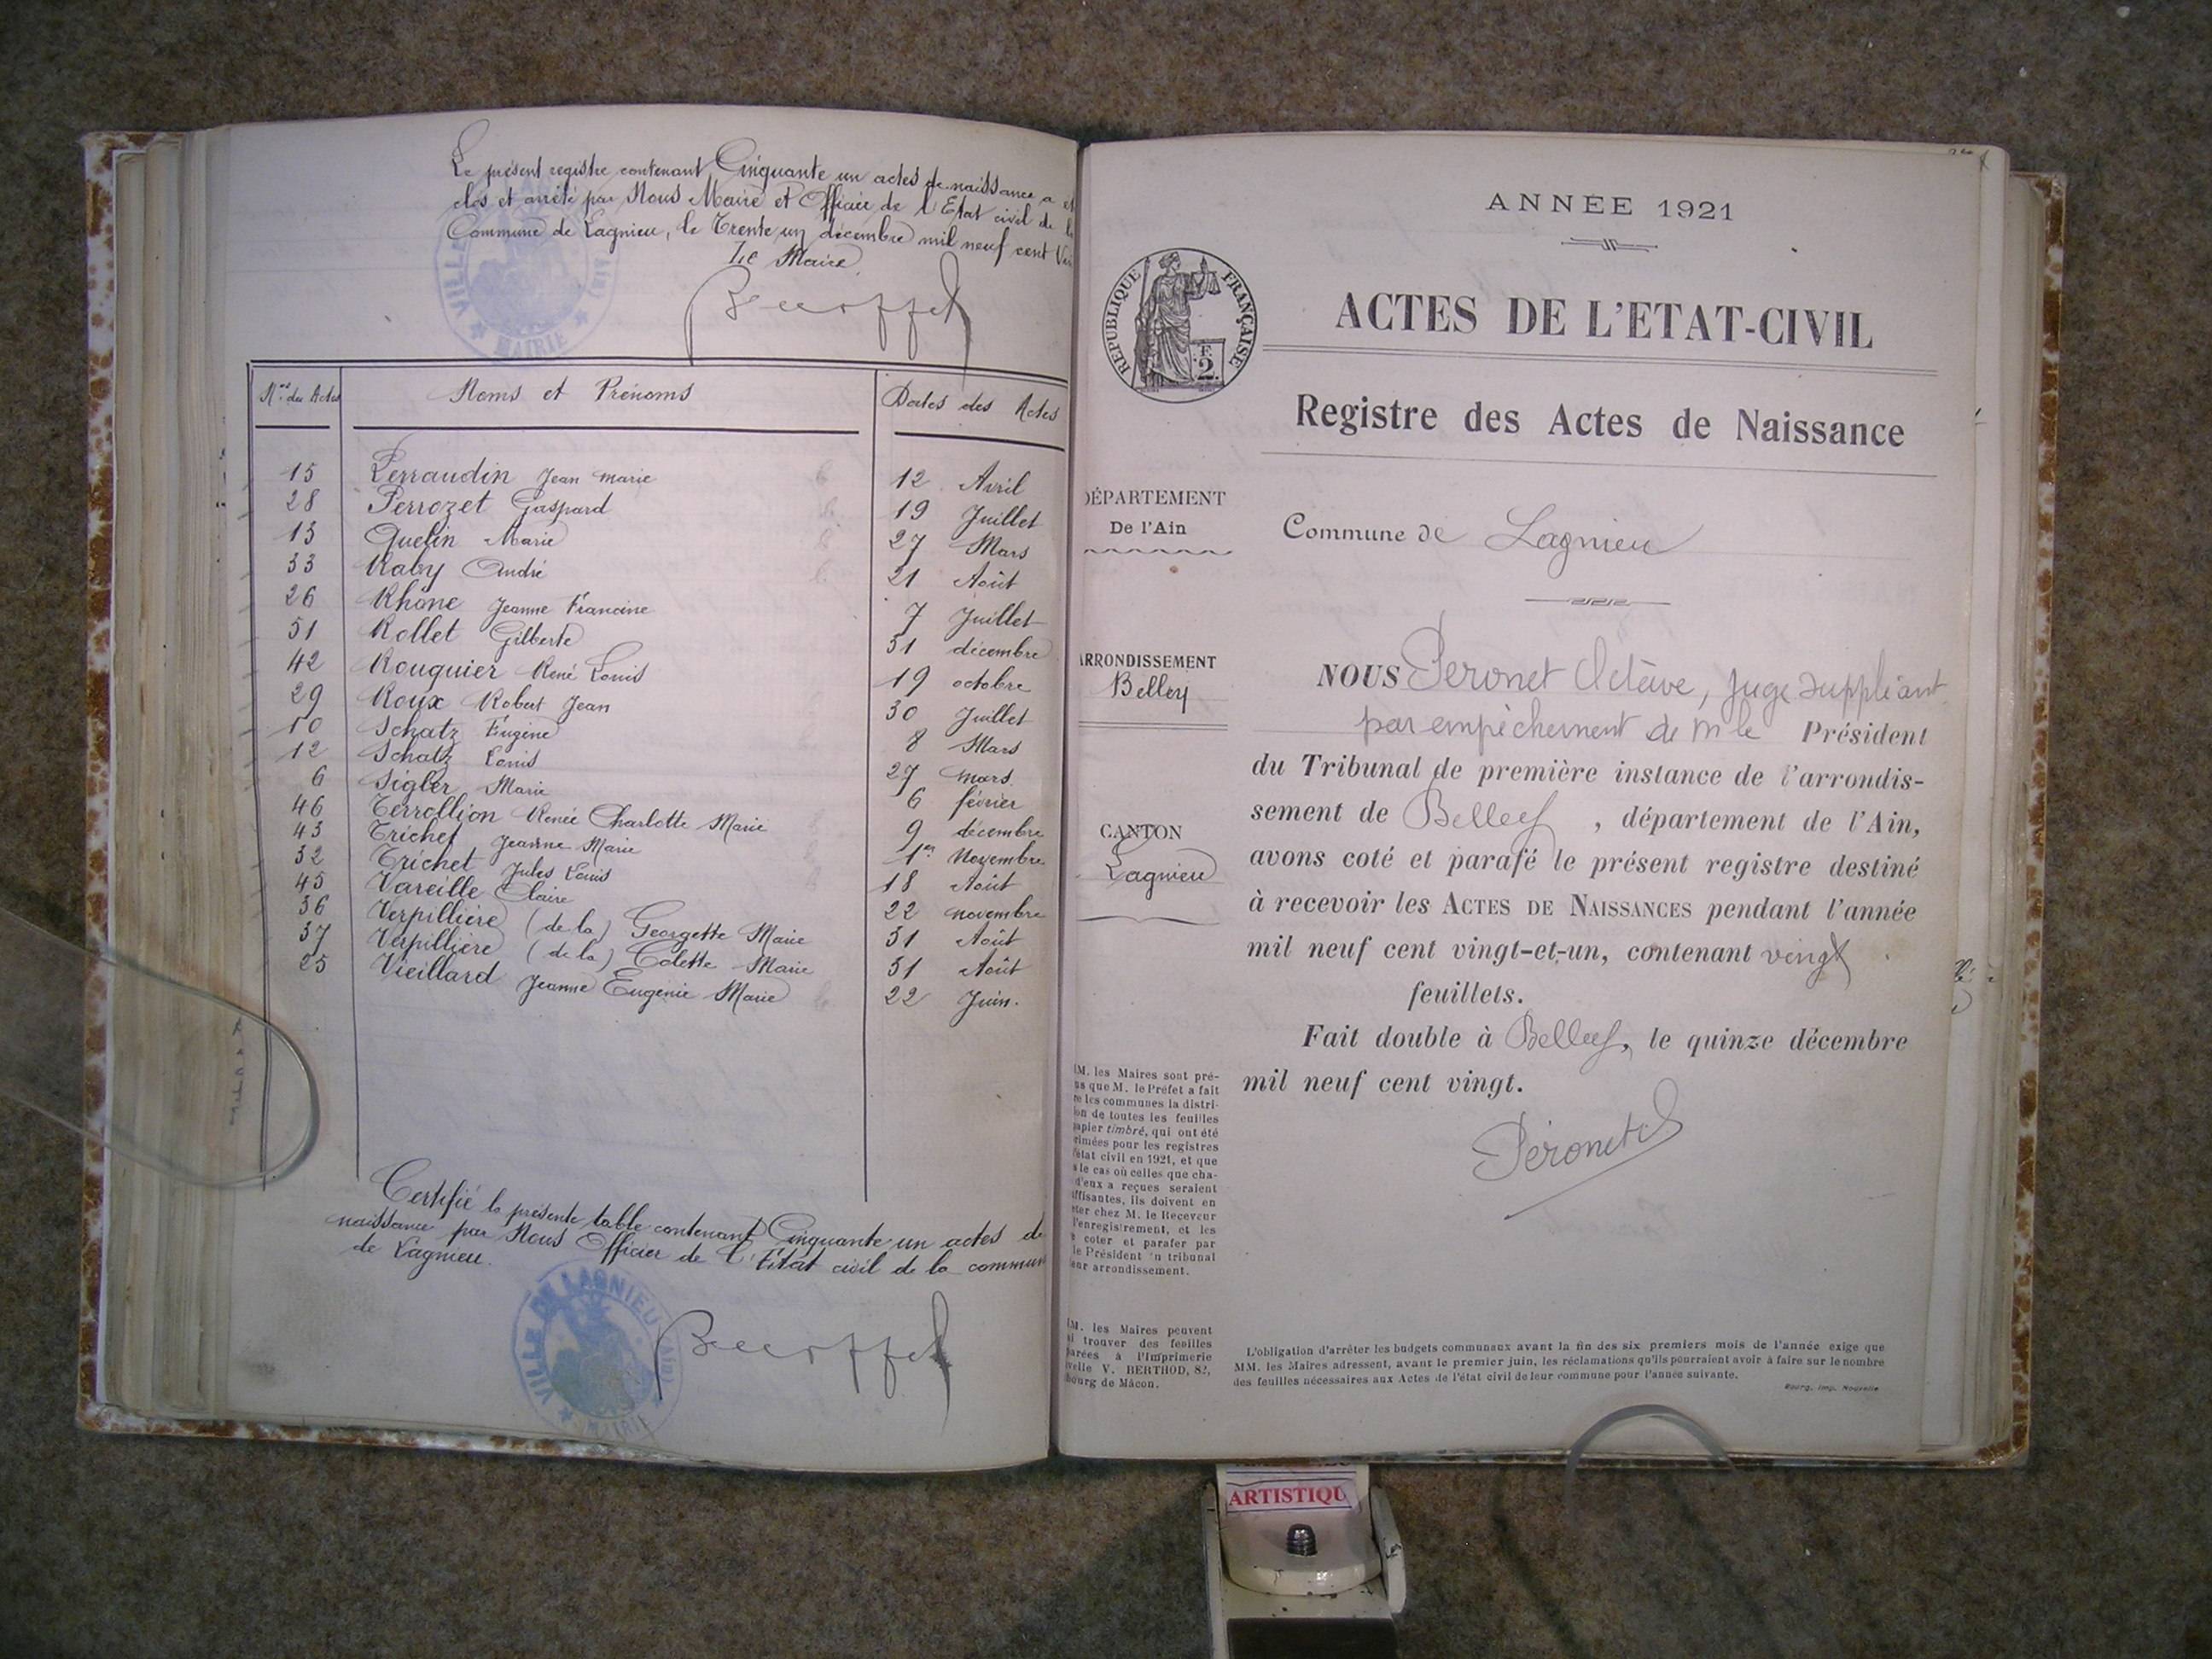 Le présent registre contenant Cinquante un actes de naissance a
clos et arrêté par Nous Maire et Officier de l'Etat civil de
Commune de Lagnieu, le Trente un décembre mil neuf cent
Le Maire
MAIRIE
Nos des Actes Noms et Prénoms Dates des Actes
15 Perraudin Jean Marie 12 Avril
28 Perrozet Gaspard 19 Juillet
13 Quelin Marie 27 Mars
33 Raby André 21 Août
26 Rhône Jeanne Francine 7 Juillet
51 Rollet Gilberte 31 décembre
42 Rouquier René Louis 19 octobre
29 Roux Robert Jean 30 Juillet
10 Schatz Eugène 8 Mars
12 Schatz Louis 27 mars
6 Sigler Marie 6 février
46 Terrollion Renée Charlotte Marie 9 décembre
43 Trichet Jeanne Marie 1er Novembre
32 Trichet Jules Louis 18 Août
45 Vareille Claire 22 novembre
36 Verpillière (de la) Georgette Marie 31 Août
37 Verpillière (de la) Colette Marie 31 Août
25 Vieillard Jeanne Eugénie Marie 22 Juin.
Certifié la présente table contenant Cinquante un actes de
naissance par Nous Officier de l'État civil de la commune
de Lagnieu.
VILLE DE LAGNIEU (AIN)
MAIRIE
ANNÉE 1921
RÉPUBLIQUE FRANÇAISE
F.
2.
ACTES DE L'ETAT-CIVIL
Registre des Actes de Naissance
DÉPARTEMENT
De l'Ain
Commune de Lagnieu
ARRONDISSEMENT
Belley
CANTON
Lagnieu
NOUS Peronet Octave, juge suppléant
par empêchement de M le Président
du Tribunal de première instance de l'arrondis-
sement de Belley, département de l'Ain,
avons coté et parafé le présent registre destiné
à recevoir les ACTES DE NAISSANCES pendant l'année
mil neuf cent vingt-et-un, contenant vingt
feuillets.
Fait double à Belley, le quinze décembre
mil neuf cent vingt.
Péronet
MM. les Maires sont pré-
us que M. le Préfet a fait
re les communes la distri-
ion de toutes les feuilles
papier timbré, qui ont été
rimées pour les registres
l'état civil en 1921, et que
s le cas où celles que cha-
d'eux a reçues seraient
ffisantes, ils doivent en
ter chez M. le Receveur
l'enregistrement, et les
e coter et parafer par
le Président du tribunal
leur arrondissement.
MM. les Maires peuvent
si trouver des feuilles
parées à l'Imprimerie
velle V. BERTHOD, 82,
bourg de Mâcon.
L'obligation d'arrêter les budgets communaux avant la fin des six premiers mois de l'année exige que
MM. les Maires adressent, avant le premier juin, les réclamations qu'ils pourraient avoir à faire sur le nombre
des feuilles nécessaires aux Actes de l'état civil de leur commune pour l'année suivante.
Bourg, Imp. Nouvelle
ARTISTIQU